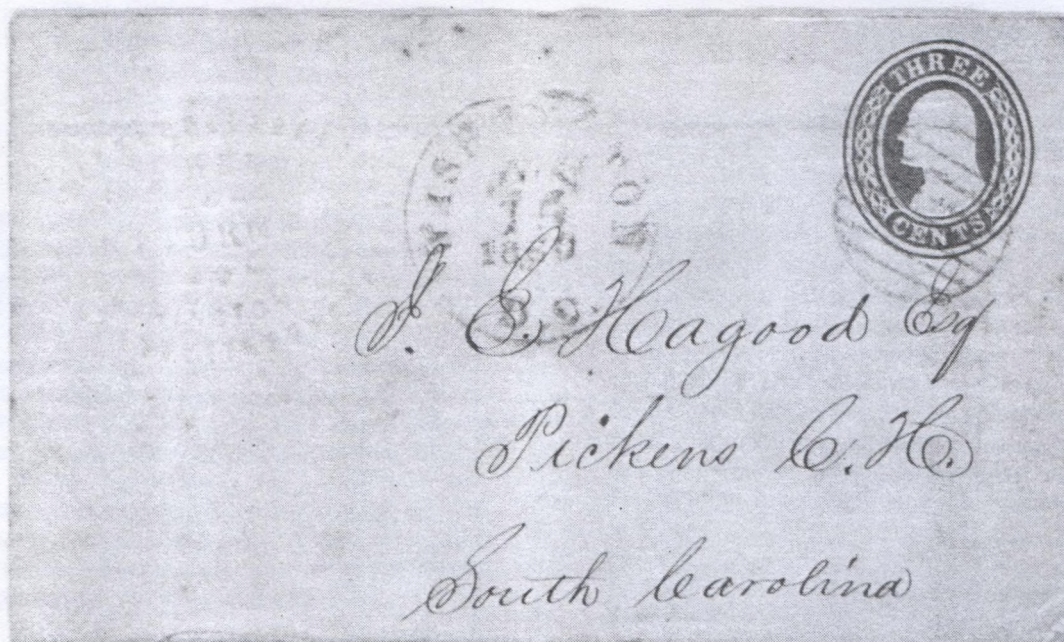 THREE
CENTS
WASHINGTON
J. E. Hagood Esq
Pickens C. H.
South Carolina